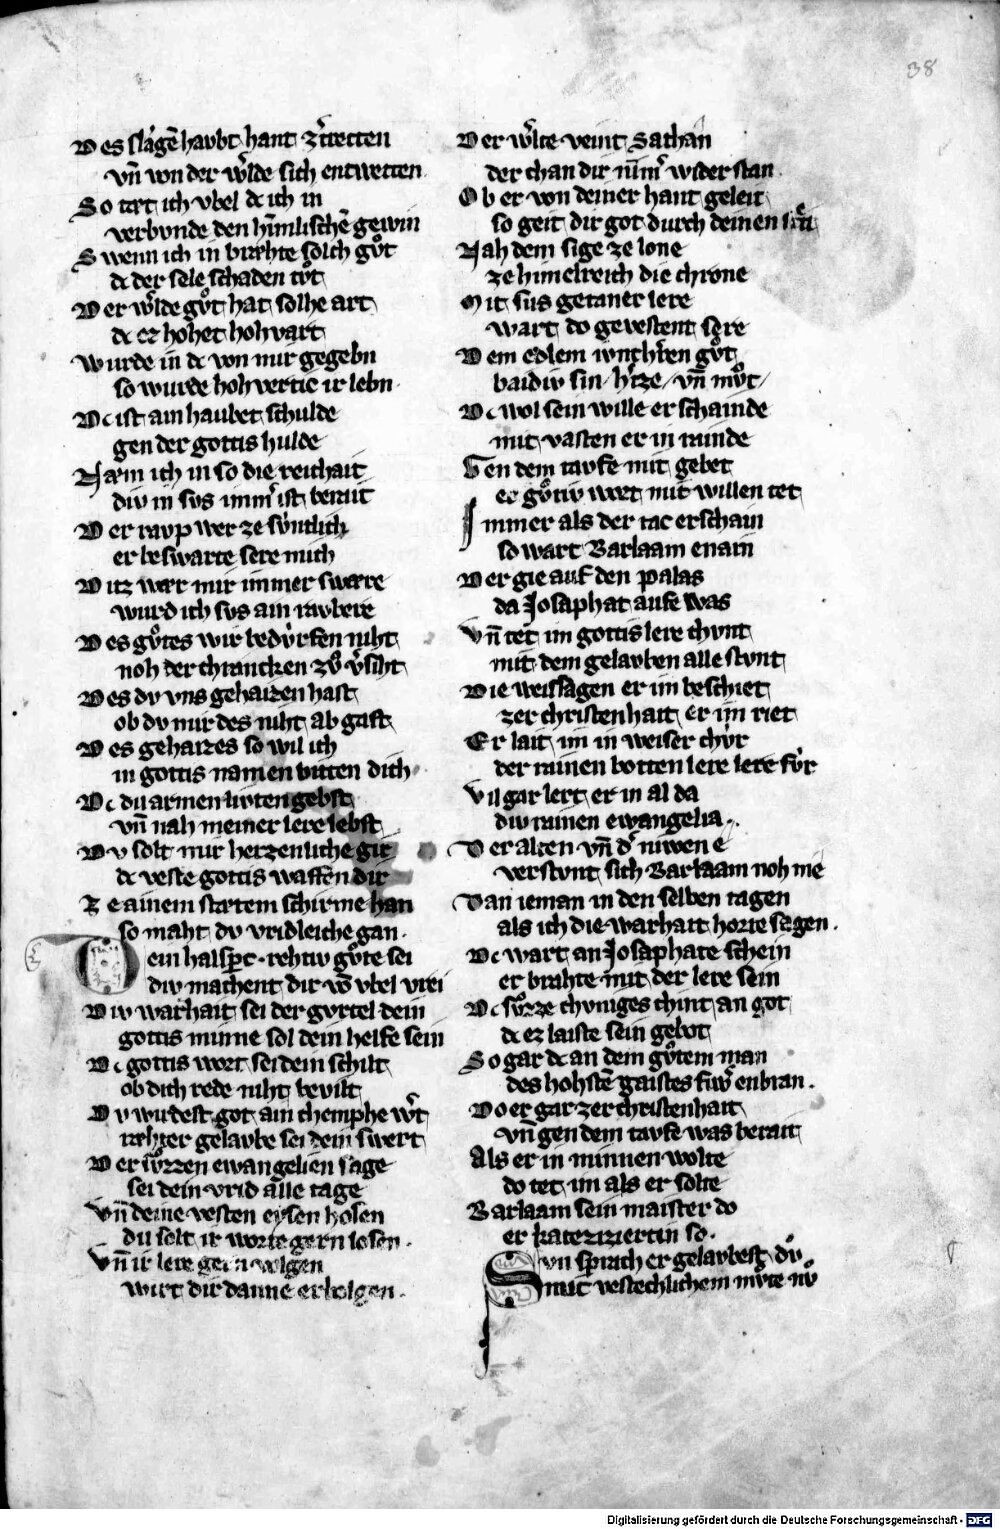 38
Des slagē havbt hant zˀtretten
vn̄ von der wˀlde sich entwetten
So tæt ich vbel dc ich in
verbvnde den hīmlischē gewin
Swenn ich in bræhte solch gv̊t
dc der sele schaden tv̊t
Der wˀlde gv̊t hat solhe art
dc ez hohet hohvart
Wurde in dc von mir gegebn
so wurde hohvertic ir lebn
Dc ist ain haubet schulde
gen der gottis hulde
Næm ich in so die reichait
div in svs immˀ ist berait
Der ravp wer ze svntlich
er beswarte sere mich
Ditz wær mir immer swære
wurd ich svs ain ravbere
Des gv̊tes wir bedvrfen niht
noh der chrancken zv̊ vˀsiht
Des dv vns gehaizen hast
ob dv mir des niht ab gast
Des gehaizes so wil ich
in gottis namen bitten dich
Dc du armen livten gebst
vn̄ nah meiner lere lebst
Dv solt mir herzenliche gir
dc veste gottis waffen dir
Ze ainem stætem schirme han
so maht dv vridleiche gan.
Dein halsperc rehtiv gv̊te sei
div machent dir vō vbel vrei
Div warhait sei der gvrtel dein
gottis minne sol dein helfe sein
Dc gottis wort sei dein schilt
ob dich rede niht bevilt
Dv wirdest got ain chemphe wˀt
ræhter gelavbe sei dein swert
Der sv̊zzen ewangelien sage
sei dein vrid alle tage
Vn̄ deine vesten eysen hosen
du solt ir worte gern losen.
Vn̄ ir lere gern volgen
wirt dir danne erbolgen.
Der wˀlte veint Sathan
der chan dir nimˀ wider stan
Ob er von deiner hant geleit
so geit dir got durch deinen
Nah dem sige ze lone
ze himelreich die chrone
Mit sus getaner lere
wart do gevestent sere
Dem edlem ivnchˀren gv̊t
baidiv sin / hˀtze / vn̄ mv̊t /
Dc wol sein wille erschainde
mit vasten er in rainde
Gen dem tavfe mit gebet
ee gv̊tiv wort mit willen tet
Immer als der tac erschain
so wart Barlaam enain
Der gie auf den palas
da Josaphat aufe was
Vn̄ tet im gottis lere chvnt
mit dem gelavben alle stvnt
Die weissagen er im beschiet
zer christenhait er im riet
Er lait im in weiser chvr
der rainen botten lere lere fvr
Vil gar lert er in al da
div rainen ewangelia.
Der alten vn̄ dˀ niwen e
verstvnt sich Barlaam noh me
Dan ieman in den selben tagen
als ich die warhait horte sagen.
Dc wart an Josaphate schein
er brahte mit der lere sein
Dc sv̊zze chvniges chint an got
dc ez laiste sein gebot
So gar dc an dem gv̊tem man
des hohstē gaistes fiwˀ enbran.
Do er gar zer christenhait
vn̄ gen dem tavfe was berait
Als er in minnen wolte
do tet im als er solte
Barlaam sein maister do
er kateziziertin so.
Svn sprach er gelavbest dv
mit vestechlichem mv̊te nv
Digitalisierung gefördert durch die Deutsche Forschungsgemeinschaft - DFG